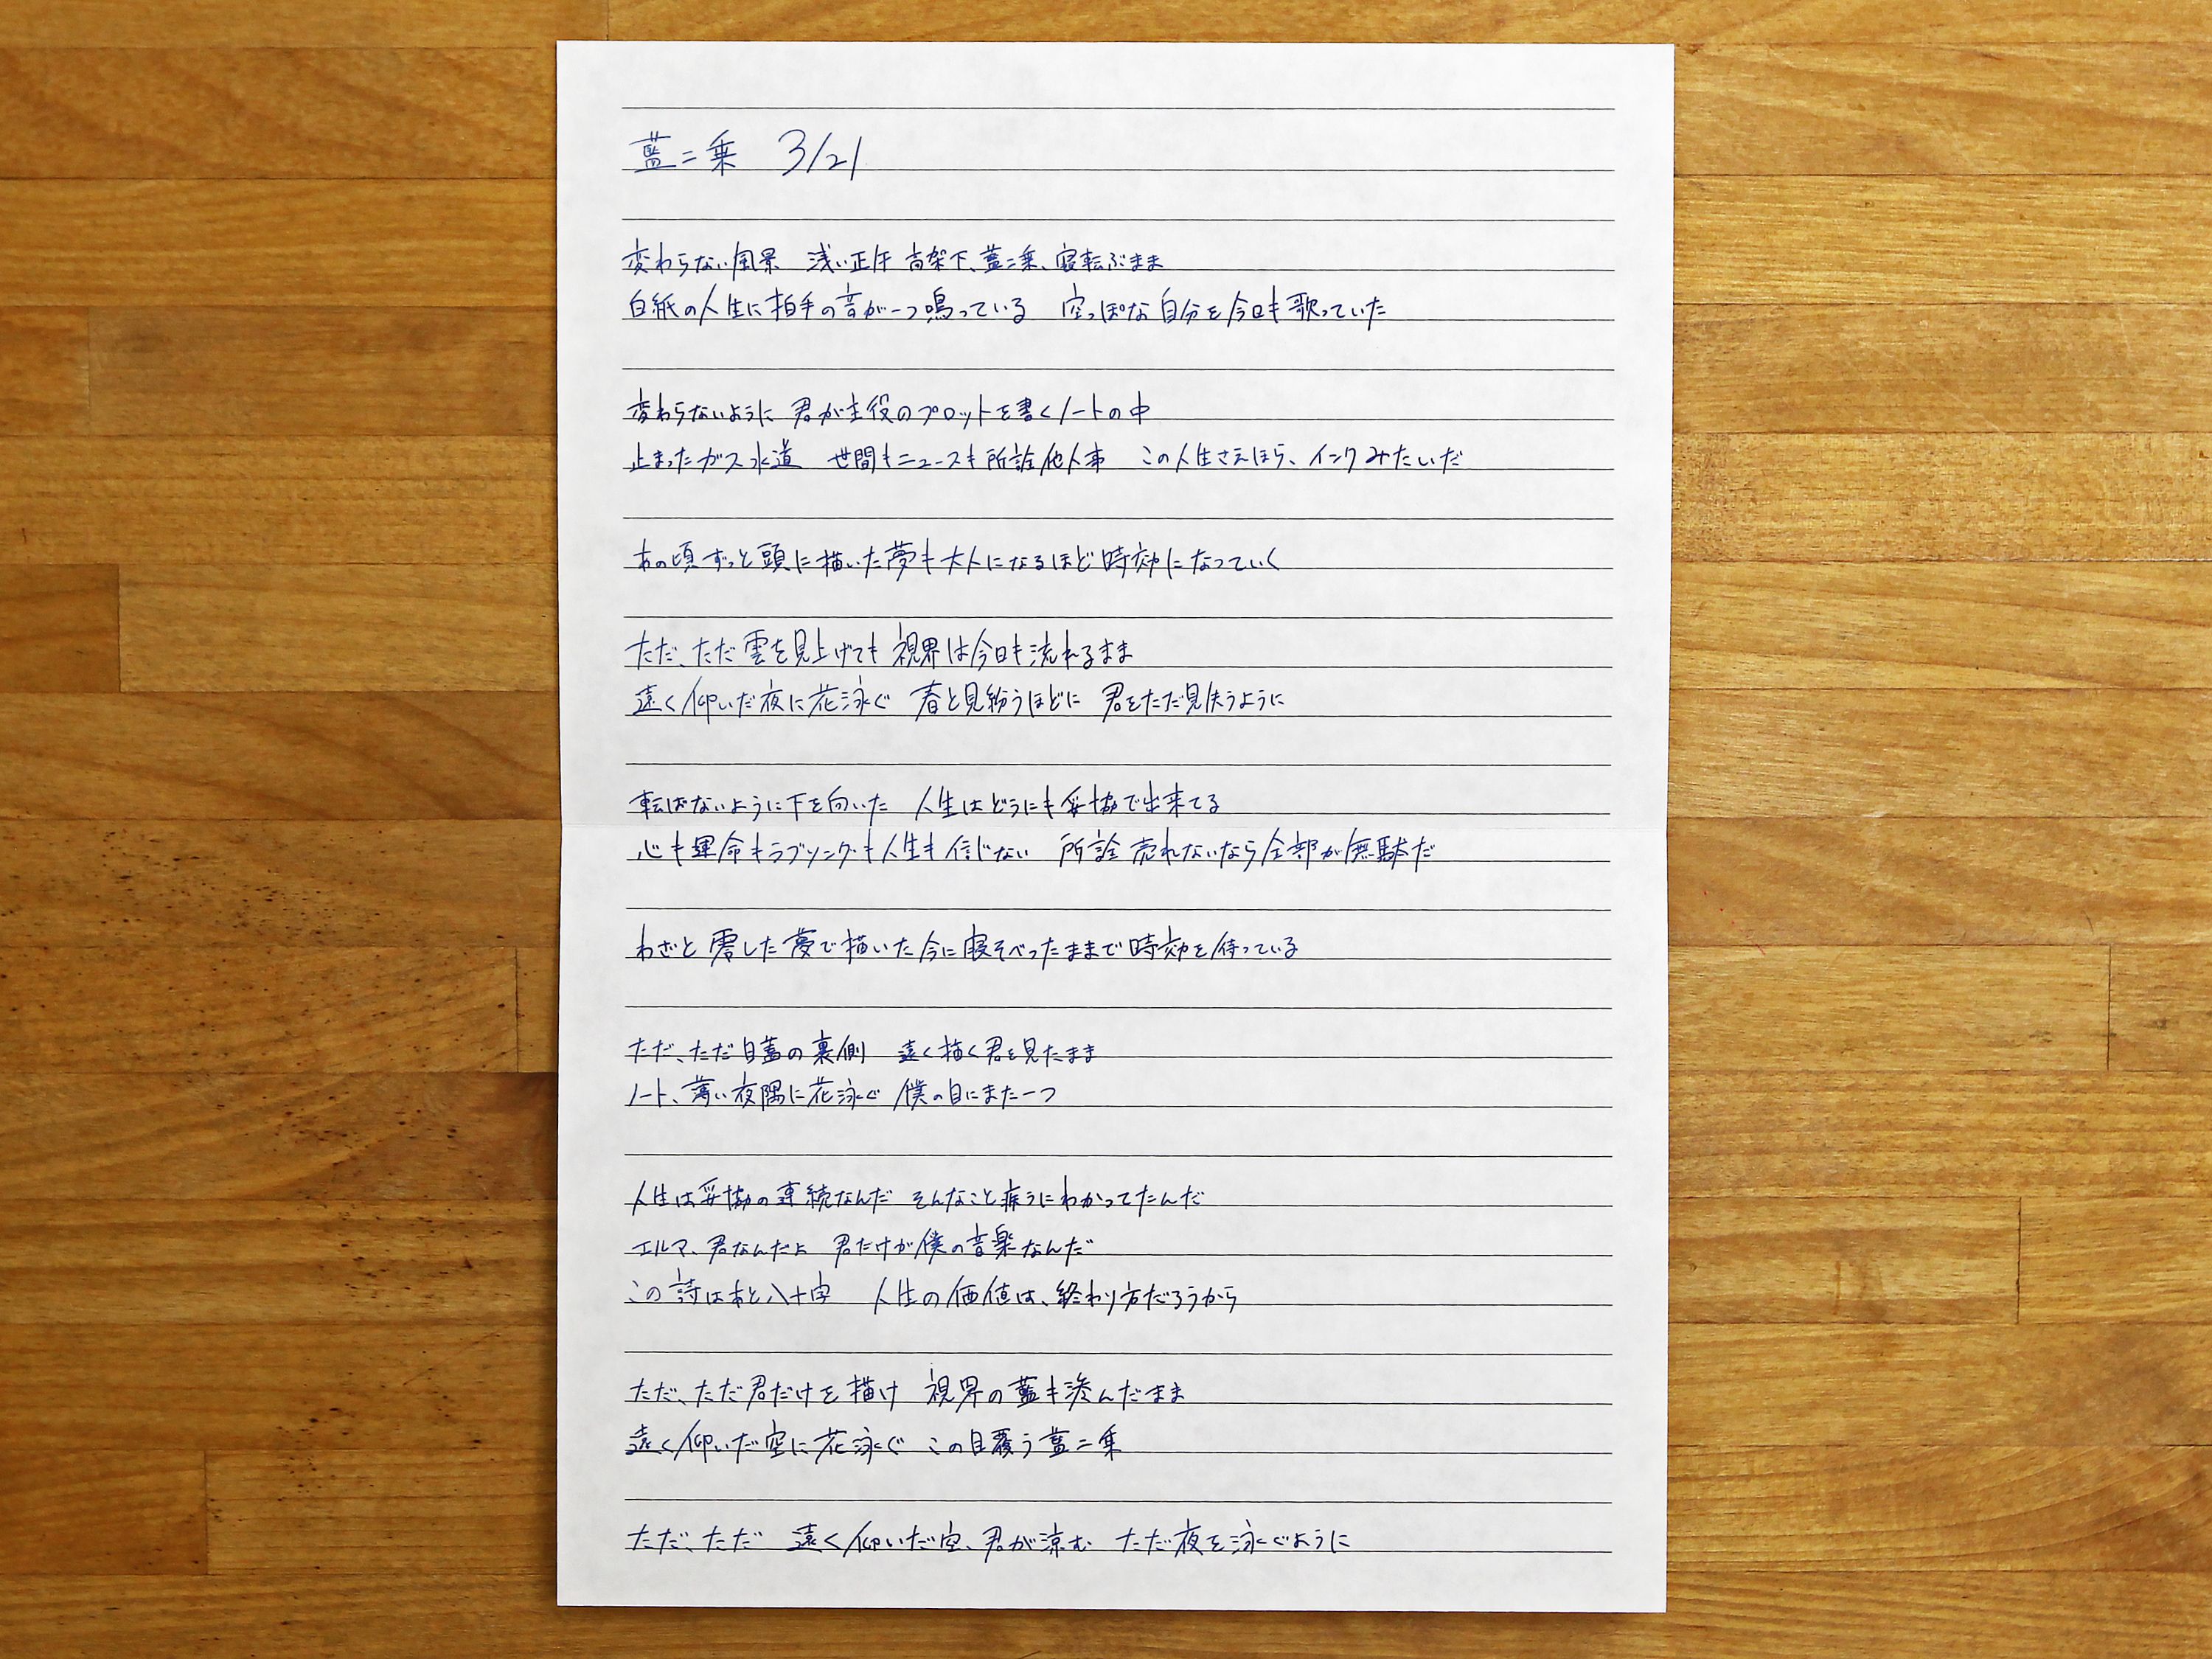 藍二乗 3/21
変わらない風景 浅い正午 高架下、藍二乗、寝転ぶまま
白紙の人生に拍手の音が一つ鳴っている 空っぽな自分を今日も歌っていた
変わらないように 君が主役のプロットを書くノートの中
止まったガス水道 世間もニュースも所詮他人事 この人生さえほら、インクみたいだ
あの頃ずっと頭に描いた夢も大人になるほど時効になっていく
ただ、ただ雲を見上げても 視界は今日も流れるまま
遠く仰いだ夜に花泳ぐ 春と見紛うほどに 君をただ見失うように
転ばないように下を向いた 人生はどうにも妥協で出来てる
心も運命もラブソングも人生も信じない 所詮売れないなら全部が無駄だ
わざと零した夢で描いた今に寝そべったままで時効を待っている
ただ、ただ目蓋の裏側 遠く描く君を見たまま
ノート、薄い夜隅に花泳ぐ 僕の目にまた一つ
人生は妥協の連続なんだ そんなこと疾うにわかってたんだ
エルマ、君なんだよ 君だけが僕の音楽なんだ
この詩はあと八十字 人生の価値は、終わり方だろうから
ただ、ただ君だけを描け 視界の藍も滲んだまま
遠く仰いだ空に花泳ぐ この目覆う藍二乗
ただ、ただ 遠く仰いだ空、君が涼む ただ夜を泳ぐように